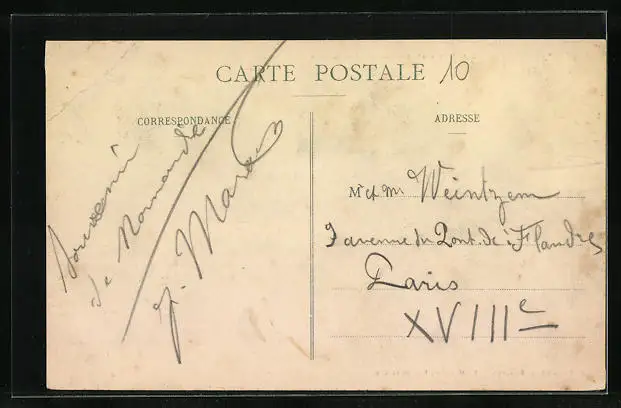 CARTE POSTALE 10
CORRESPONDANCE
ADRESSE
Souvenir
de Normandie
J. Mara
Mr et Mme Weintzem
9 avenue du Pont de Flandres
Paris
XVIIIe